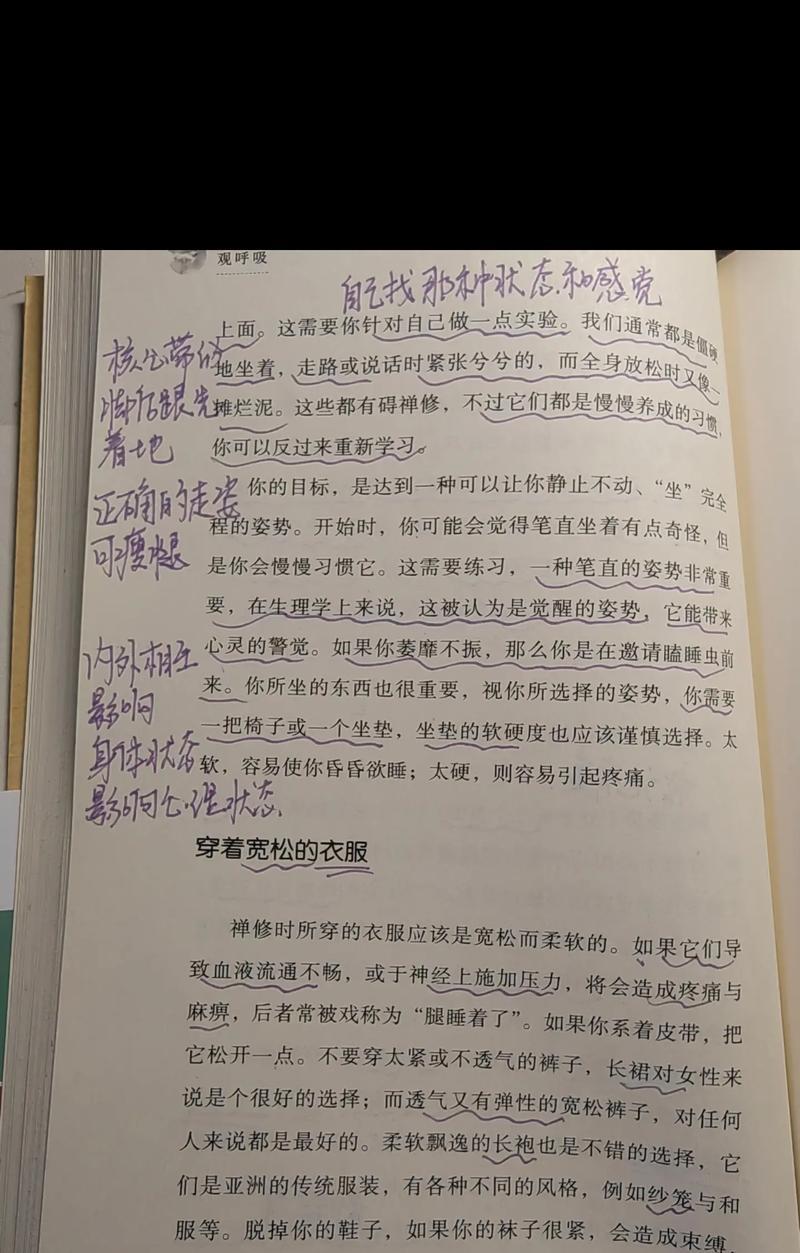 观呼吸
自己找那种状态和感觉
上面。这需要你针对自己做一点实验。我们通常都是僵硬
地坐着，走路或说话时紧张兮兮的，而全身放松时又像一
摊烂泥。这些都有碍禅修，不过它们都是慢慢养成的习惯，
你可以反过来重新学习。
核心带的
脚后跟先
着地
正确的走姿
可瘦腿
你的目标，是达到一种可以让你静止不动、“坐”完全
程的姿势。开始时，你可能会觉得笔直坐着有点奇怪，但
是你会慢慢习惯它。这需要练习，一种笔直的姿势非常重
要，在生理学上来说，这被认为是觉醒的姿势，它能带来
心灵的警觉。如果你萎靡不振，那么你是在邀请瞌睡虫前
来。你所坐的东西也很重要，视你所选择的姿势，你需要
一把椅子或一个坐垫，坐垫的软硬度也应该谨慎选择。太
软，容易使你昏昏欲睡；太硬，则容易引起疼痛。
内外相互
影响
身体状态
影响心理状态
穿着宽松的衣服
禅修时所穿的衣服应该是宽松而柔软的。如果它们导
致血液流通不畅，或于神经上施加压力，将会造成疼痛与
麻痹，后者常被戏称为“腿睡着了”。如果你系着皮带，把
它松开一点。不要穿太紧或不透气的裤子，长裙对女性来
说是个很好的选择；而透气又有弹性的宽松裤子，对任何
人来说都是最好的。柔软飘逸的长袍也是不错的选择，它
们是亚洲的传统服装，有各种不同的风格，例如纱笼与和
服等。脱掉你的鞋子，如果你的袜子很紧，会造成束缚，